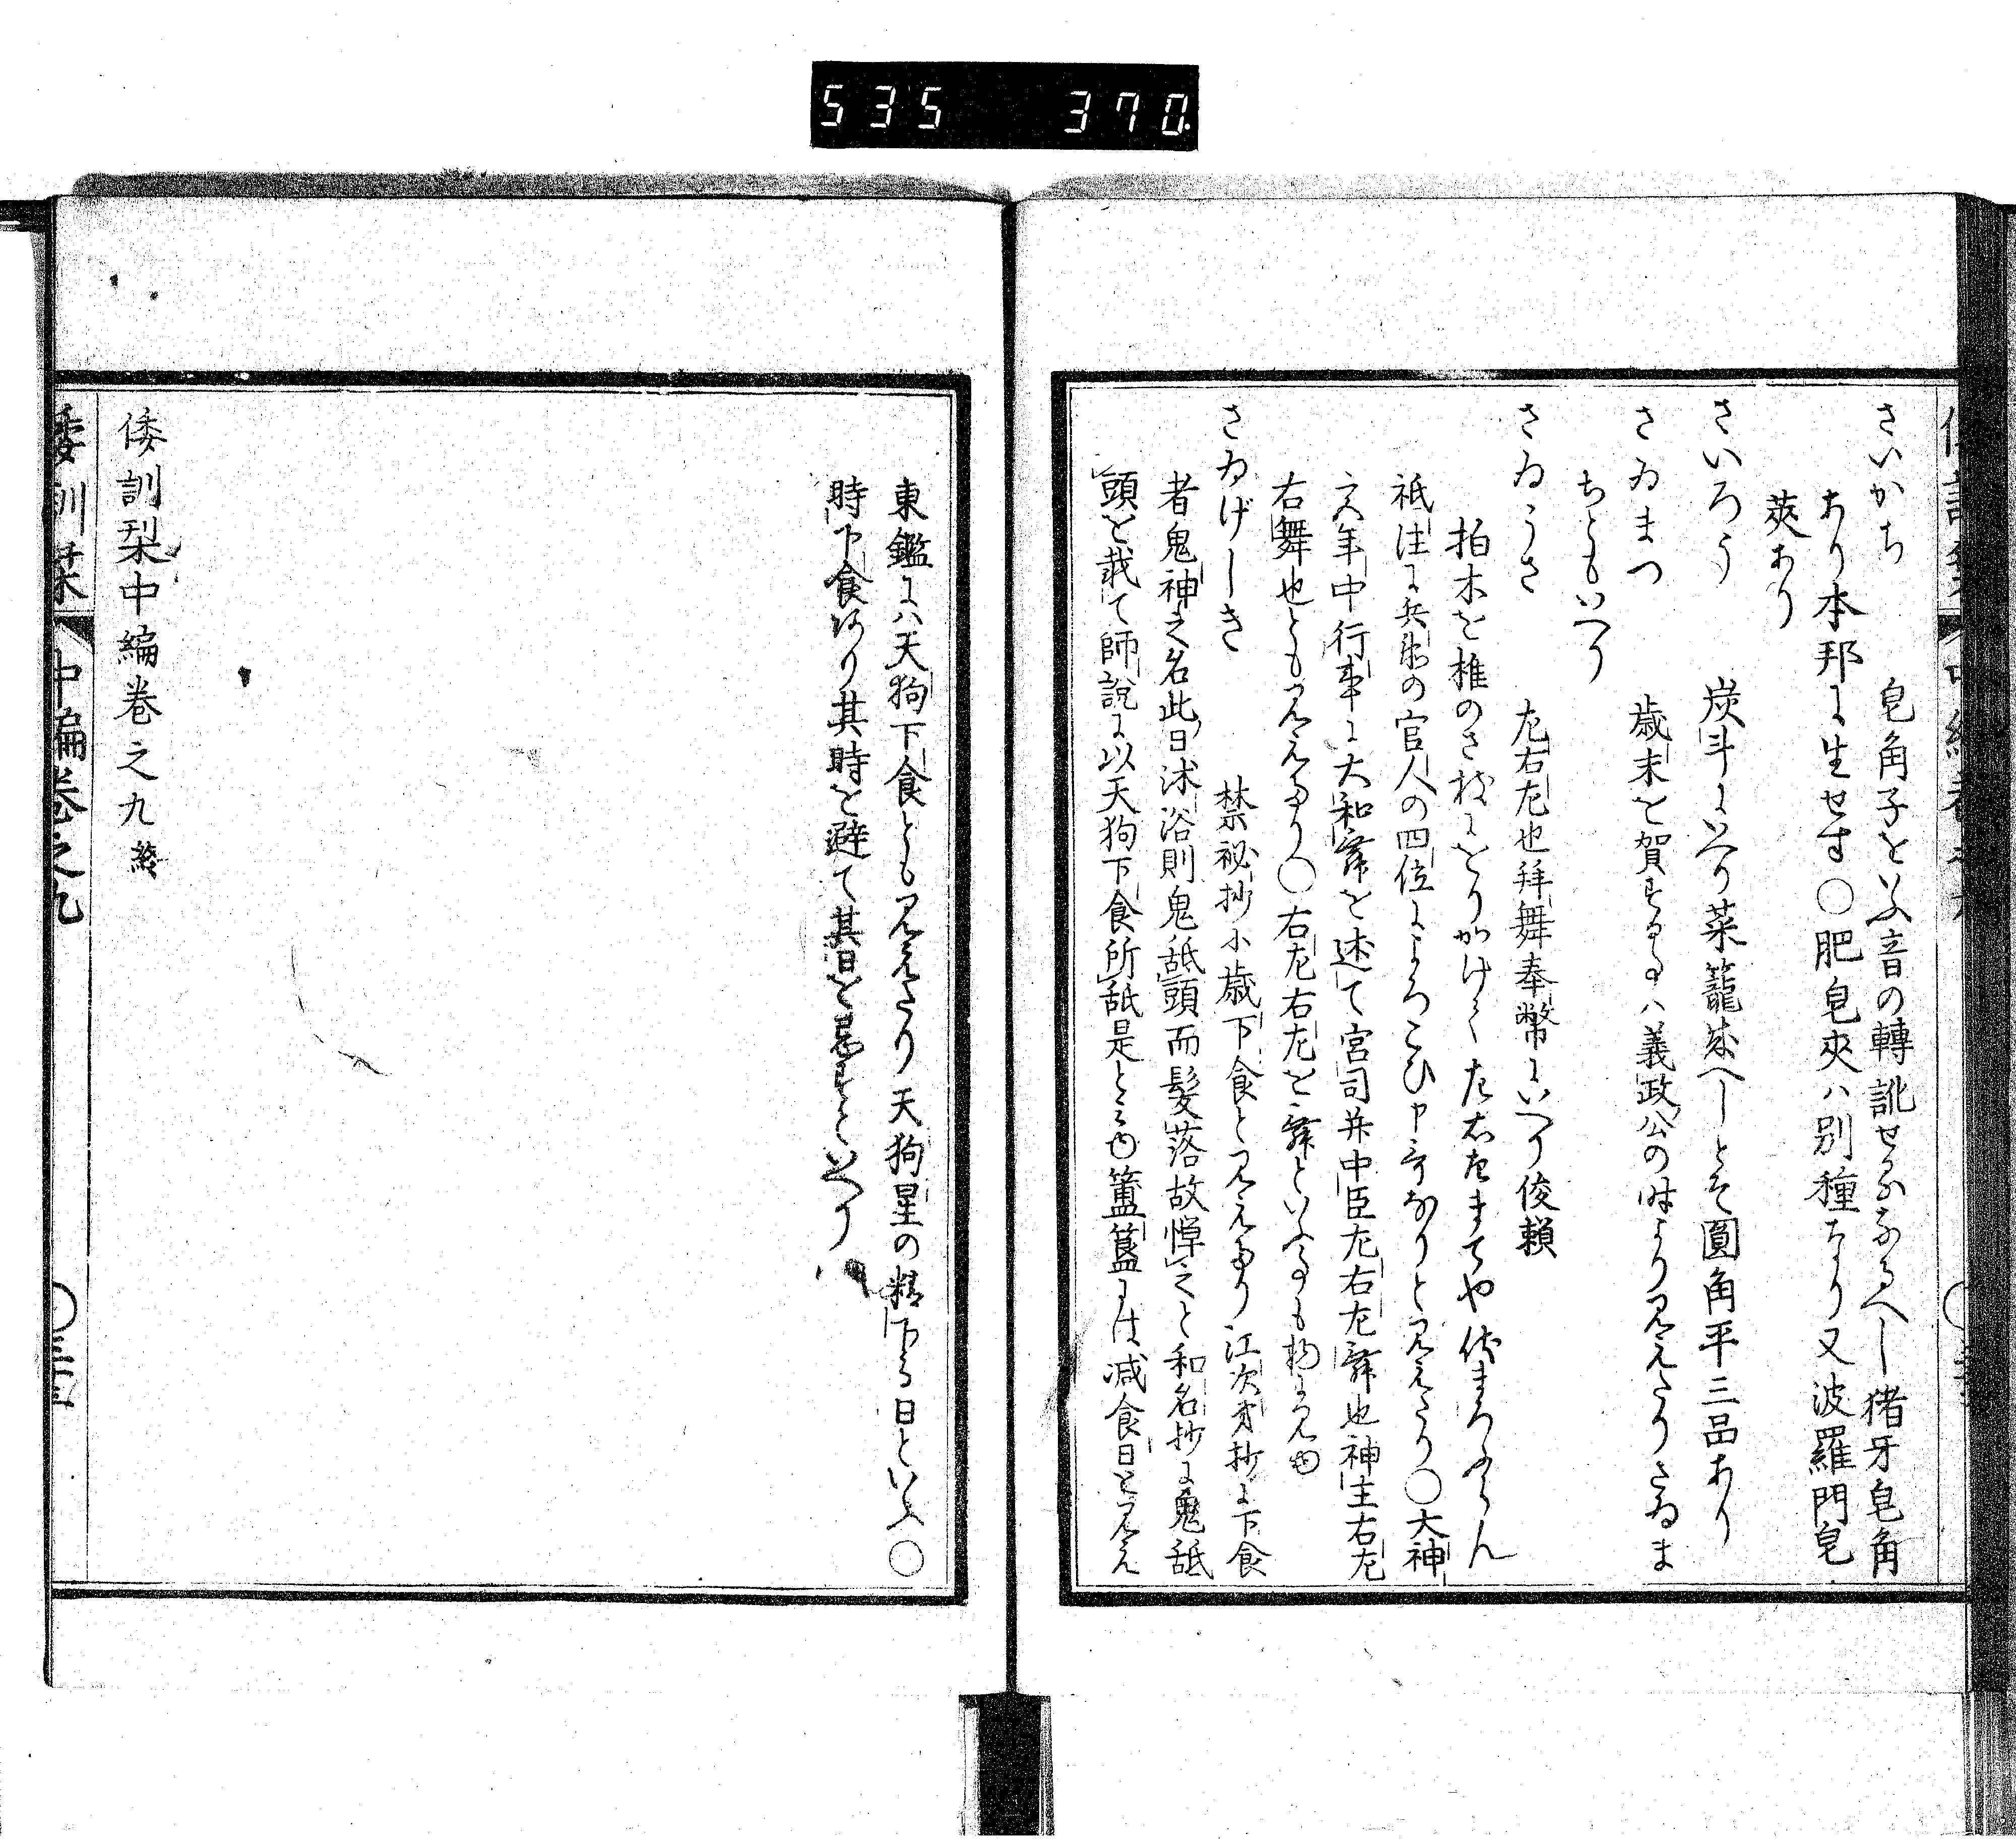 535 370
さいかち 皂角子をいふ音の轉訛せるなるへし猪牙皂角
あり本邦に生せす○肥皂夾ハ別種なり又波羅門皂
莢あり
さいろう 炭斗にいへり菜籠成へしとそ圓角平三品あり
さゐまつ 歳末を賀する事ハ義政公の時より見えたりさゐま
ちともいへり
さゐうさ 左右左也拜舞奉幣にいへり俊頼
柏木を椎のさ枝にとりかけて左右左まてや
祇注に兵衛の官人の四位によろこひ申哥なりと見えたり○大神
宮年中行事に大和舞を述て宮司并中臣左右左舞也神主右左
右舞也とも見えたり○右左右左を舞といふ事も物に見ゆ
さゐげしき 禁祕抄小歳下食と見えたり江次第抄に下食
者鬼神之名此日沐浴則鬼舐頭而髮落故憚之と和名抄に鬼舐
頭を載て師説に以天狗下食所舐是と云ゆ簠簋には減食日と見え
東鑑にハ天狗下食とも見えたり天狗星の精下る日といふ○
時下食あり其時を避て其日を忌すといへり
倭訓栞中編卷之九終
倭訓栞 中編卷之九 ○三十五